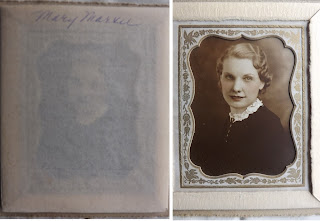 Mary Marker